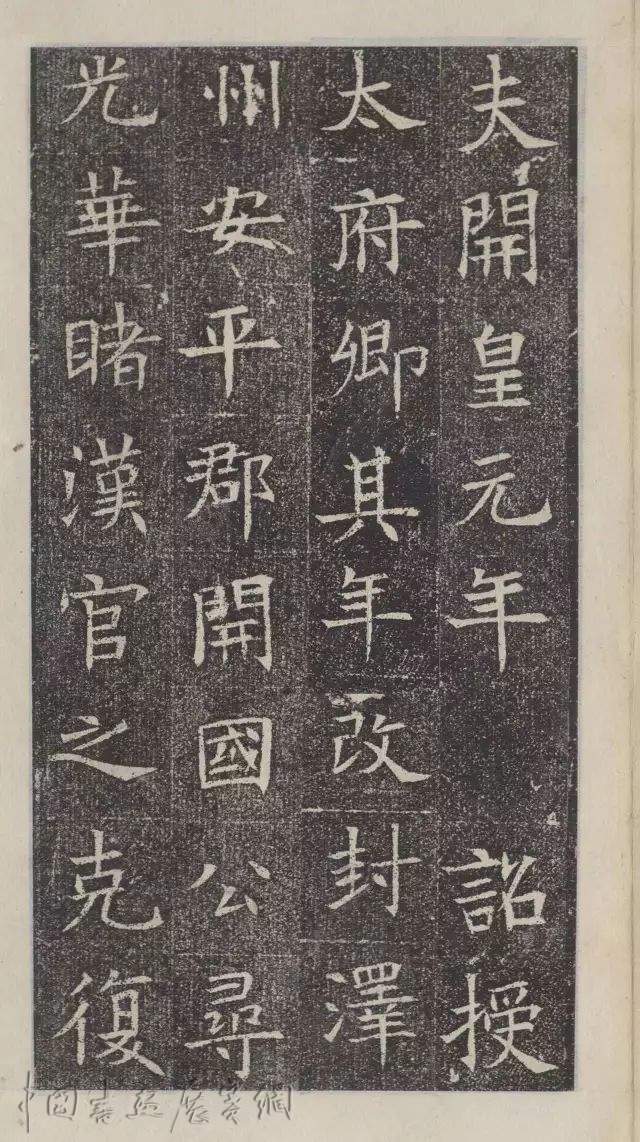 夫開皇元年 詔授
太府卿其年改封澤
州安平郡開國公尋
光華睹漢官之克復
中国书法展赛网